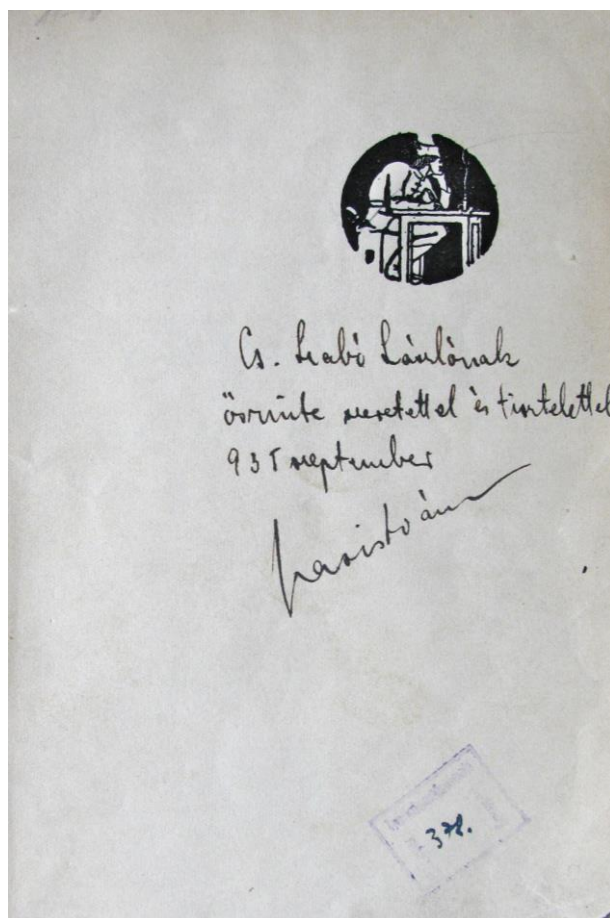 Cs. Szabó Lászlónak
őszinte szeretettel és tisztelettel
935 szeptember
Vas István
378.